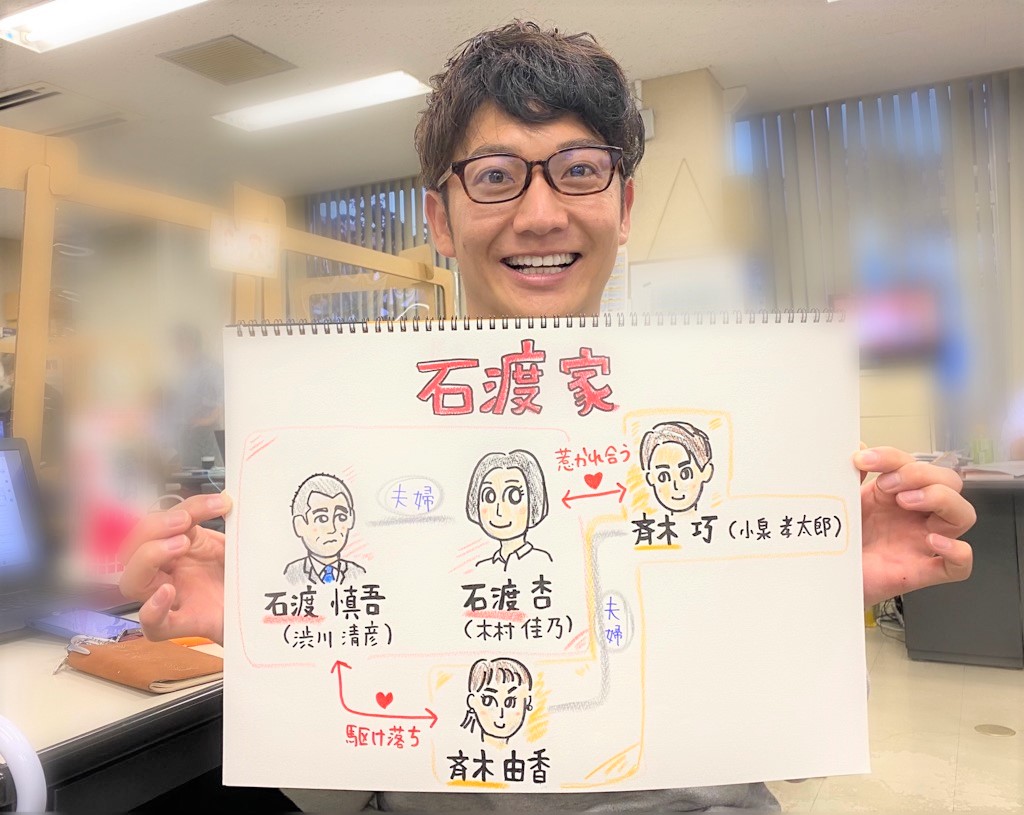 石渡家
惹かれ合う
夫婦
斉木 巧 (小泉 孝太郎)
石渡 慎吾
(渋川 清彦)
石渡 杏
(木村 佳乃)
夫婦
駆け落ち
斉木 由香